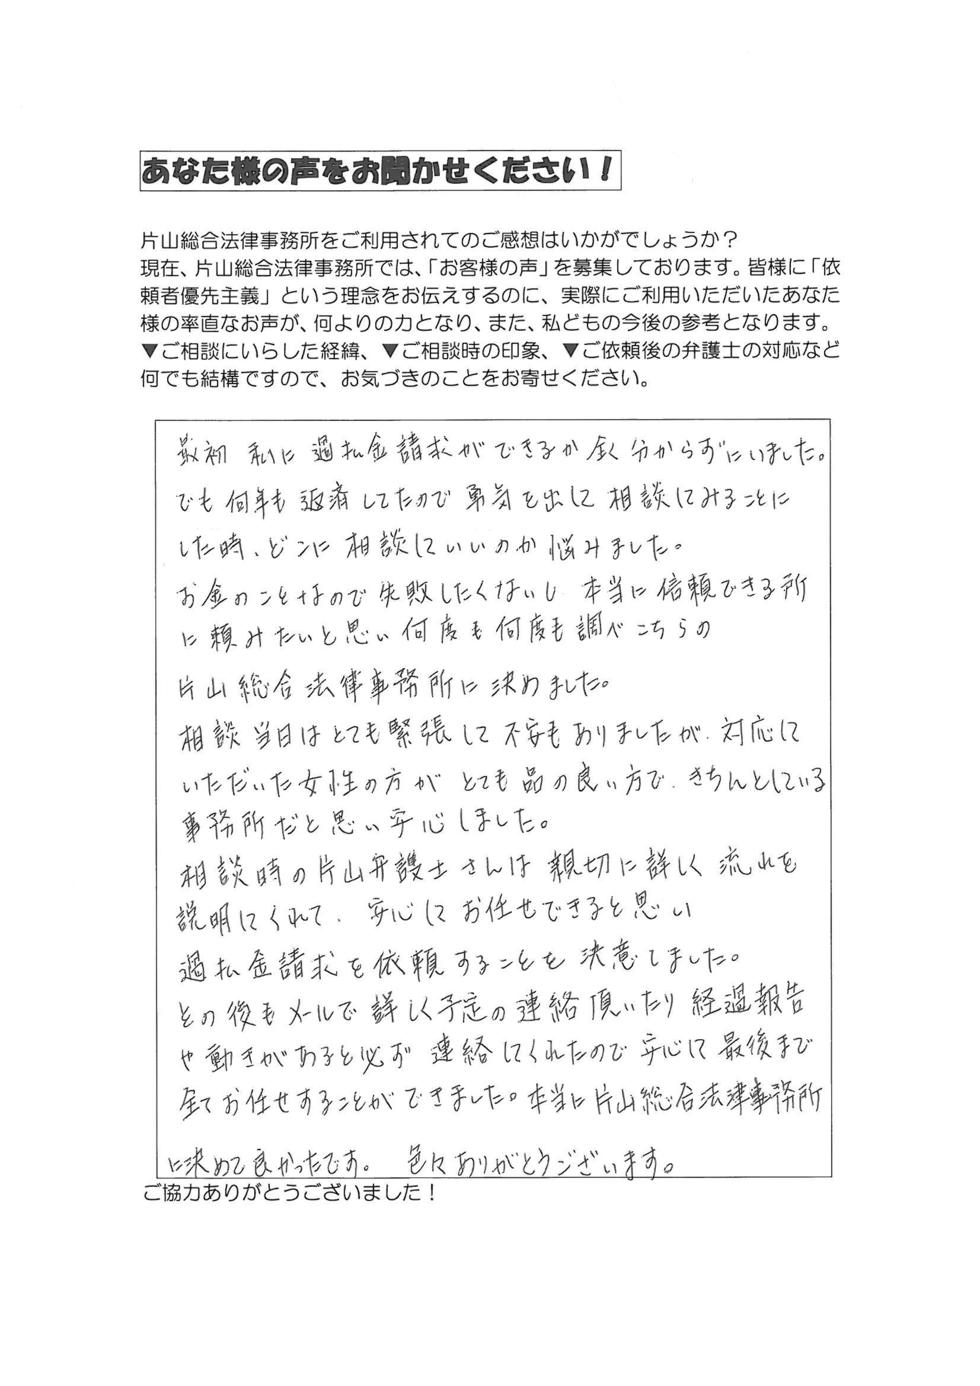 あなた様の声をお聞かせください！
片山総合法律事務所をご利用されてのご感想はいかがでしょうか？
現在、片山総合法律事務所では、「お客様の声」を募集しております。皆様に「依
頼者優先主義」という理念をお伝えするのに、実際にご利用いただいたあなた
様の率直なお声が、何よりの力となり、また、私どもの今後の参考となります。
▼ご相談にいらした経緯、▼ご相談時の印象、▼ご依頼後の弁護士の対応など
何でも結構ですので、お気づきのことをお寄せください。
最初 私に 過払金請求ができるか全く分からずにいました。
でも何年も返済してたので勇気を出して相談してみることに
した時、どこに相談していいのか悩みました。
お金のことなので失敗したくないし 本当に信頼できる所
に頼みたいと思い何度も何度も調べこちらの
片山総合法律事務所に決めました。
相談当日はとても緊張して不安もありましたが、対応して
いただいた女性の方が とても品の良い方で、きちんとしている
事務所だと思い安心しました。
相談時の片山弁護士さんは 親切に詳しく流れを
説明してくれて、安心してお任せできると思い
過払金請求を依頼することを決意しました。
その後もメールで詳しく予定の連絡頂いたり経過報告
や動きがあると必ず連絡してくれたので安心して最後まで
全てお任せすることができました。本当に片山総合法律事務所
に決めて良かったです。 色々ありがとうございます。
ご協力ありがとうございました！